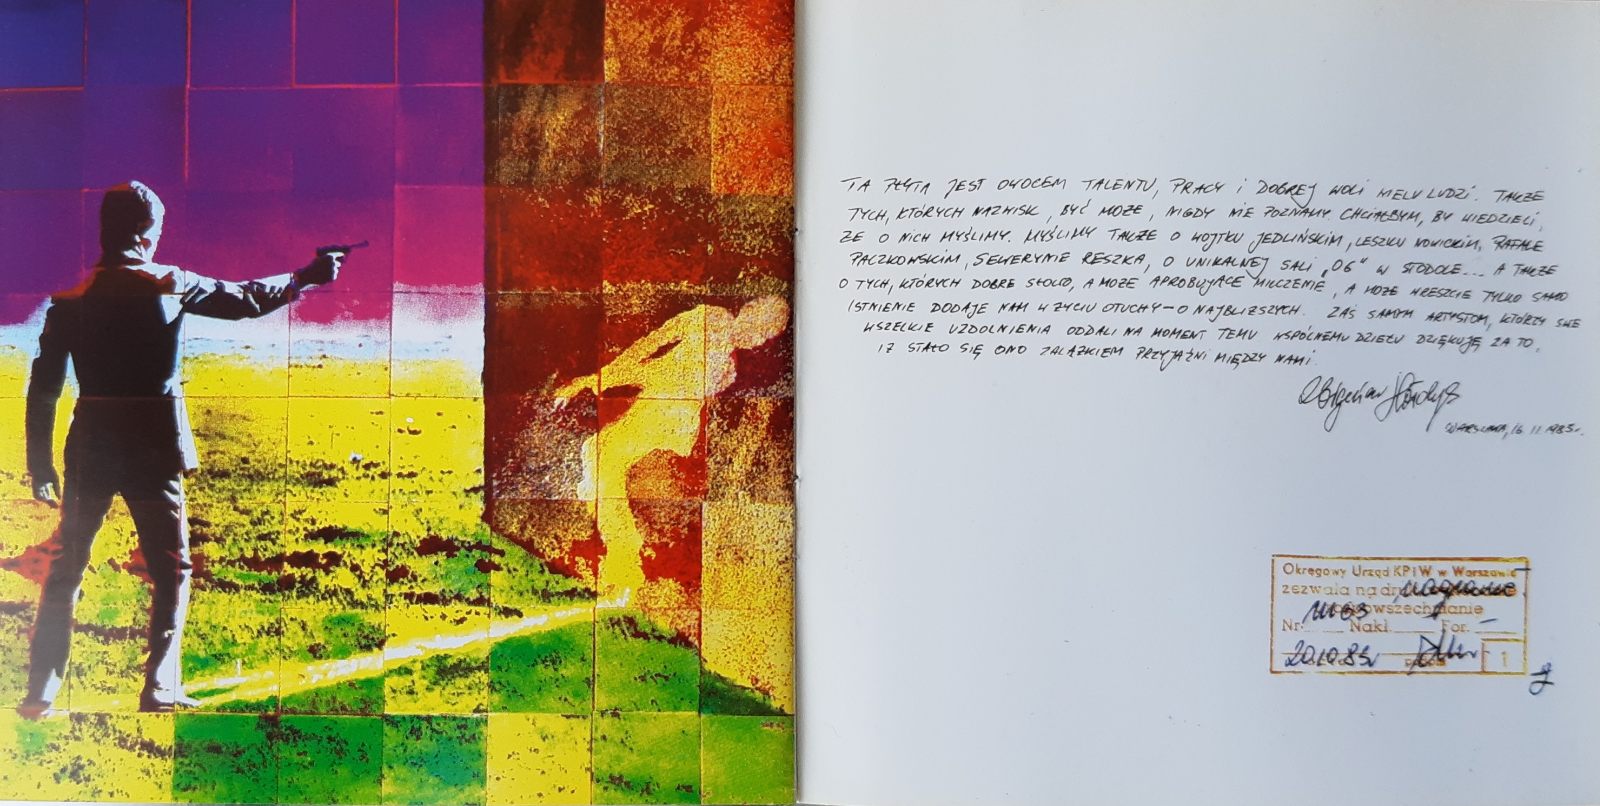 TA PŁYTA JEST OWOCEM TALENTU, PRACY I DOBREJ WOLI WIELU LUDZI. TAKŻE
TYCH, KTÓRYCH NAZWISK, BYĆ MOŻE, NIGDY NIE POZNAMY. CHCIAŁBYM, BY WIEDZIELI,
ŻE O NICH MYŚLIMY. MYŚLIMY TAKŻE O WOJTKU JEDLIŃSKIM, LESZKU NOWICKIM, RAFALE
PACZKOWSKIM, SEWERYNIE RESZKA, O UNIKALNEJ SALI „06" W STODOLE... A TAKŻE
O TYCH, KTÓRYCH DOBRE SŁOWO, A MOŻE APROBUJĄCE MILCZENIE, A MOŻE WRESZCIE TYLKO SAMO
ISTNIENIE DODAJE NAM W ŻYCIU OTUCHY – O NAJBLIŻSZYCH. ZAŚ SAMYM ARTYSTOM, KTÓRZY SWE
WSZELKIE UZDOLNIENIA ODDALI NA MOMENT TEMU WSPÓLNEMU DZIEŁU DZIĘKUJĘ ZA TO,
IŻ STAŁO SIĘ ONO ZALĄŻKIEM PRZYJAŹNI MIĘDZY NAMI.
Zbigniew Hołdys
WARSZAWA, 16.11.1985r.
Okręgowy Urząd KPiW w Warszawie
zezwala na nagranie
i rozpowszechnianie
Nr. Nakł. For.
1